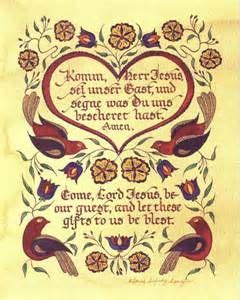 Komm, Herr Jesus,
sei unser Gast, und
segne was Du uns
bescheret hast.
Amen.
Come, Lord Jesus, be-
our guest, and let these
gifts to us be blest.